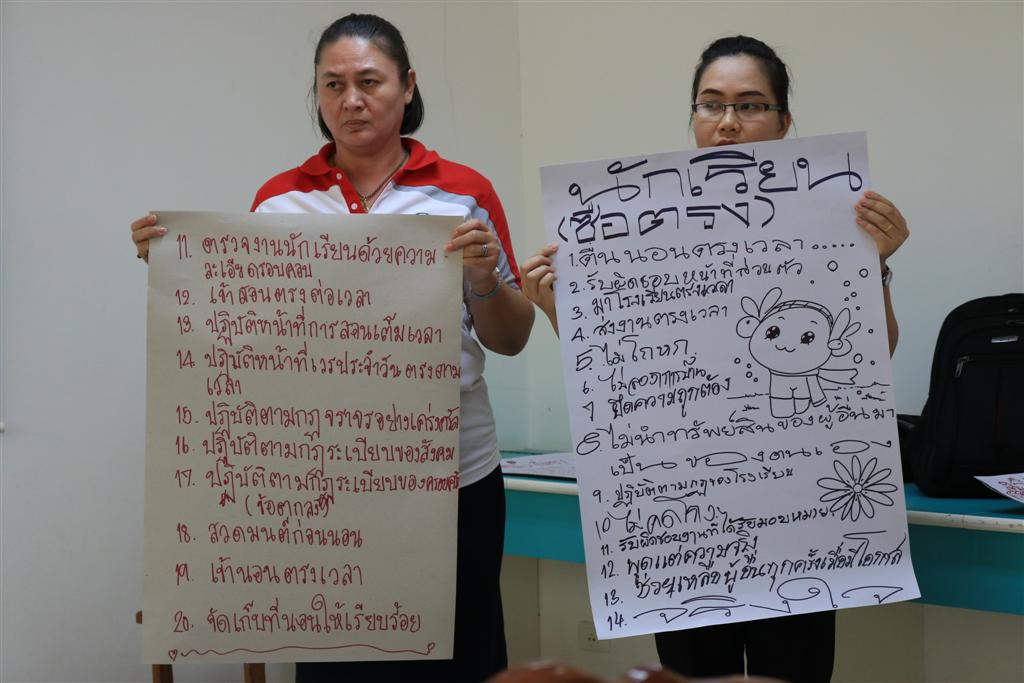 11. ตรวจงานนักเรียนด้วยความ
ละเอียดรอบคอบ
12. เข้าสอนตรงต่อเวลา
13. ปฏิบัติหน้าที่การสอนเต็มเวลา
14. ปฏิบัติหน้าที่เวรประจำวันตรงตาม
เวลา
15. ปฏิบัติตามกฎจราจรอย่างเคร่งครัด
16. ปฏิบัติตามกฎระเบียบของสังคม
17. ปฏิบัติตามกฎระเบียบของครอบครัว
(ข้อตกลง)
18. สวดมนต์ก่อนนอน
19. เข้านอนตรงเวลา
20. จัดเก็บที่นอนให้เรียบร้อย
นักเรียน
(ซื่อตรง)
1. ตื่นนอนตรงเวลา.....
2. รับผิดชอบหน้าที่ส่วนตัว
3. มาโรงเรียนตรงเวลา
4. ส่งงานตรงเวลา
5. ไม่โกหก
6. ไม่ลอกการบ้าน
7. ยึดความถูกต้อง
8. ไม่นำทรัพย์สินของผู้อื่นมา
เป็นของตนเอง
9. ปฏิบัติตามกฎของโรงเรียน
10. ไม่คดโกง
11. รับผิดชอบงานที่ได้รับมอบหมาย
12. พูดแต่ความจริง
13. ช่วยเหลือผู้อื่นทุกครั้งเมื่อมีโอกาส
14. จริงใจ